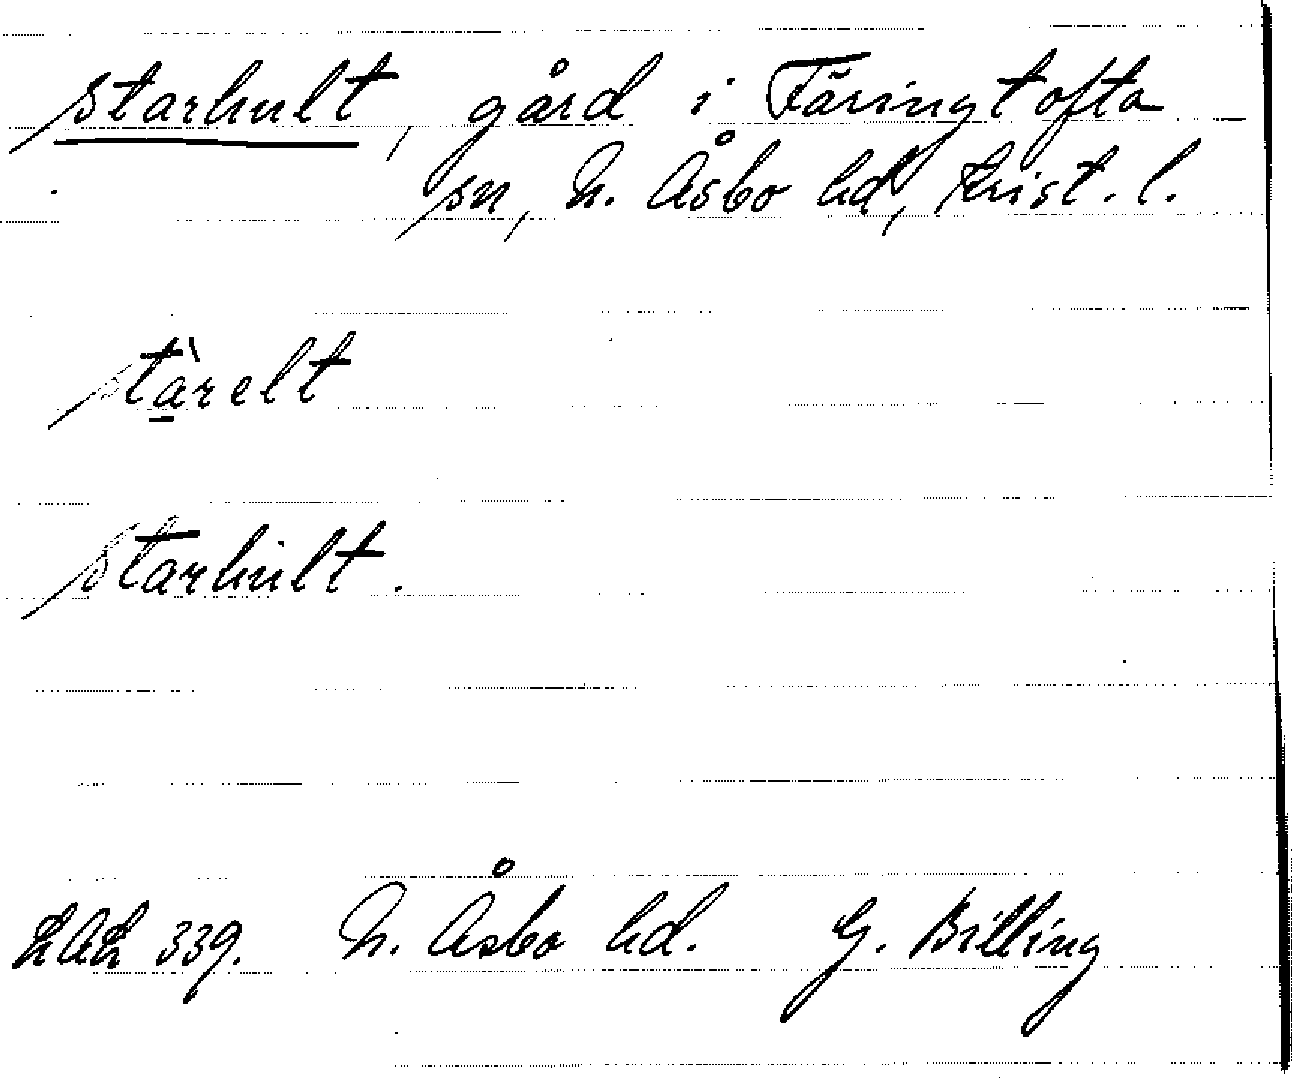 Starhult, gård i Färingtofta
sn, N. Åsbo hd, Krist. l.
stàrelt
Starhult.
LAL 339. N. Åsbo hd. G. Billing